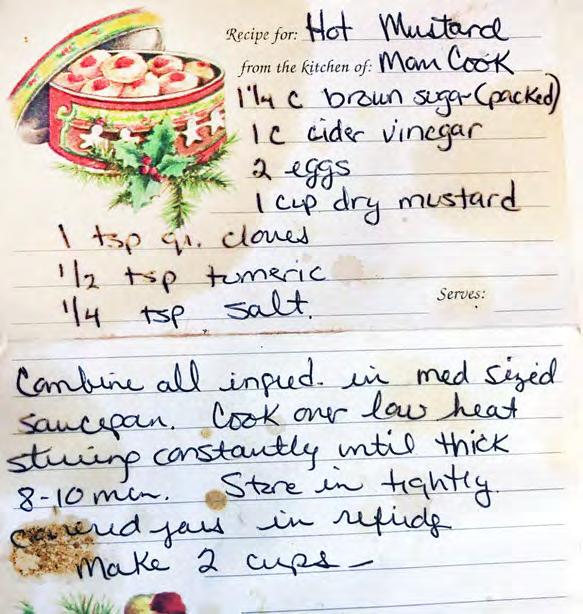 Recipe for: Hot Mustard
from the kitchen of: Mom Cook
1 1/4 c brown sugar (packed)
1 c cider vinegar
2 eggs
1 cup dry mustard
1 tsp gr. cloves
1/2 tsp tumeric
1/4 tsp salt.
Serves:
Combine all ingred. in med sized
saucepan. Cook over low heat
stirring constantly until thick
8-10 min. Store in tightly
covered jars in refridg
Make 2 cups